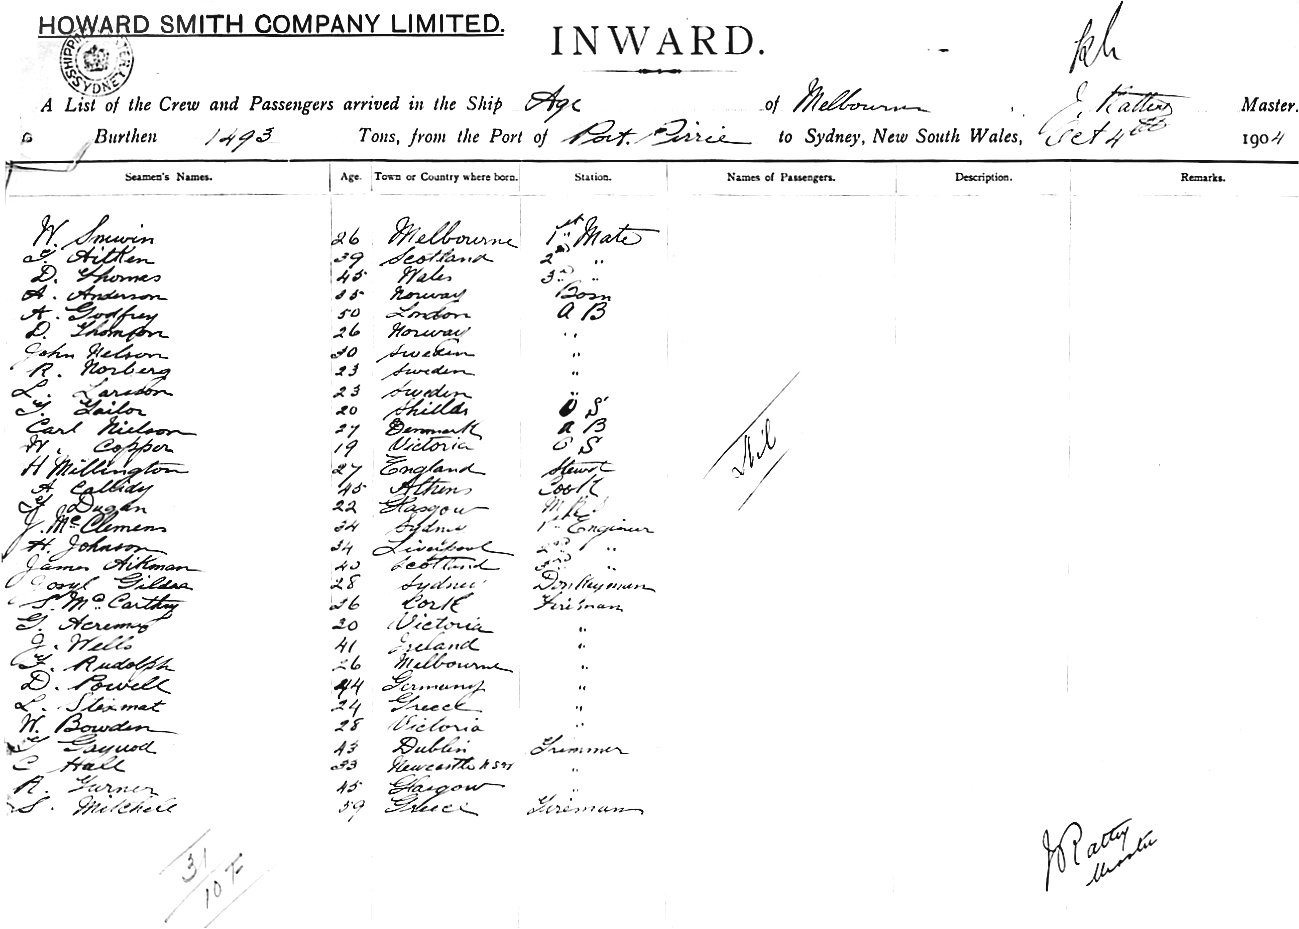 HOWARD SMITH COMPANY LIMITED.
SHIPPING MASTER SYDNEY
INWARD.
A List of the Crew and Passengers arrived in the Ship Age of Melbourne, J. Rattey Master.
Burthen 1493 Tons, from the Port of Port Pirie to Sydney, New South Wales, Oct 4th 1904
Seamen's Names. Age. Town or Country where born. Station. Names of Passengers. Description. Remarks.
W. 26 Melbourne 1st Mate
T. Aitken 39 Scotland 2nd "
D. Thomas 45 Wales 3rd "
A. Anderson 35 Norway Bosn
A. Godfrey 50 London A B
D. Thomson 26 Norway "
John Nelson 30 Sweden "
R. Norberg 23 Sweden "
L. Larsson 23 Sweden "
T. Tailor 20 Shields O S
Carl Nielson 27 Denmark A B
W. Copper 19 Victoria O S
H Millington 27 England Stewd
A Callidy 45 Athens Cook
Dugan 22 Glasgow
J. McClemens 34 Sydney 1st Engineer
H. Johnson 34 Liverpool 2nd "
James Aikman 40 Scotland 3rd "
Gildea 28 Sydney Donkeyman
S. McCarthy 36 Cork Fireman
G. 20 Victoria "
J. Wells 41 Ireland "
F. Rudolph 26 Melbourne "
D. Powell 44 Germany "
L. 24 Greece "
W. Bowden 28 Victoria "
43 Dublin Trimmer
C Hall 33 Newcastle NSW "
R. Turner 45 Glasgow "
S. Mitchell 59 Greece Fireman
Nil
31
10 F
J Rattey
Master